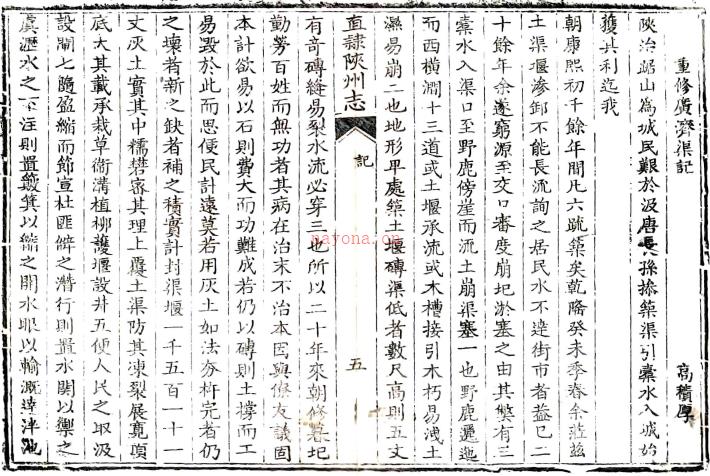 重修廣濟渠記
高積厚
陝治踞山為城民艱於汲唐長孫操築渠引橐水入城始
獲其利迄我
朝康熙初千餘年間凡六䟽築矣乾隆癸未季春余蒞茲
土渠堰滲卸不能長流詢之居民水不達街市者蓋已二
十餘年余遂窮源至交口審度崩圯淤塞之由其獘有三
橐水入渠口至野鹿傍崖而流土崩渠塞一也野鹿迤邐
而西橫澗十三道或土堰承流或木槽接引木朽易洩土
濕易崩二也地形平處築土堰磚渠低者數尺高則五丈
直隸陝州志
記
五
有奇磚縫易裂水流必穿三也所以二十年來朝修暮圯
勤勞百姓而無功者其病在治末不治本因與僚友議固
本計欲易以石則費大而功難成若仍以磚則土撐而工
易毀於此而思便民計遠莫若用灰土如法夯杵完者仍
之壞者新之缺者補之積實計封渠堰一千五百一十一
丈灰土實其中糯礬宻其理上覆土渠防其凍裂展寛項
底大其載承栽草衛溝植柳護堰設井五便人民之取汲
設閘七隨盈縮而節宣杜匪僻之潛行則置水關以禦之
虞瀝水之下注則置簸箕以瀉之開水眼以輸溉達泮池
payona.com